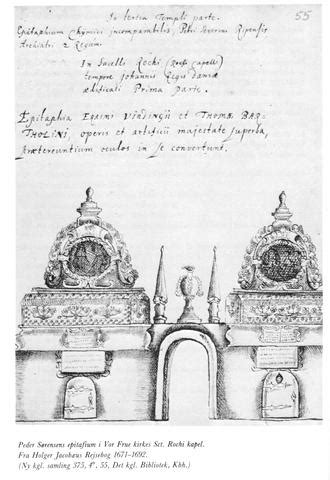 55
In tertia Templi parte.
Epitaphium chymici incomparabilis, Petri Severini Ripensis
Archiatri 2 Regum.
In Sacello Rochi (Rochs Capell)
tempore Johannis Regis daniæ
ædificati Prima parte.
Epitaphia Erasmi Vindingii et Thomæ Bar-
tholini, operis et artificii majestate superba,
prætereuntium oculos in se convertunt.
Peder Sørensens epitafium i Vor Frue kirkes Sct. Rochi kapel.
Fra Holger Jacobæus Rejsebog 1671–1692.
(Ny kgl. samling 373, 4°. 55, Det kgl. Bibliotek, Kbh.)